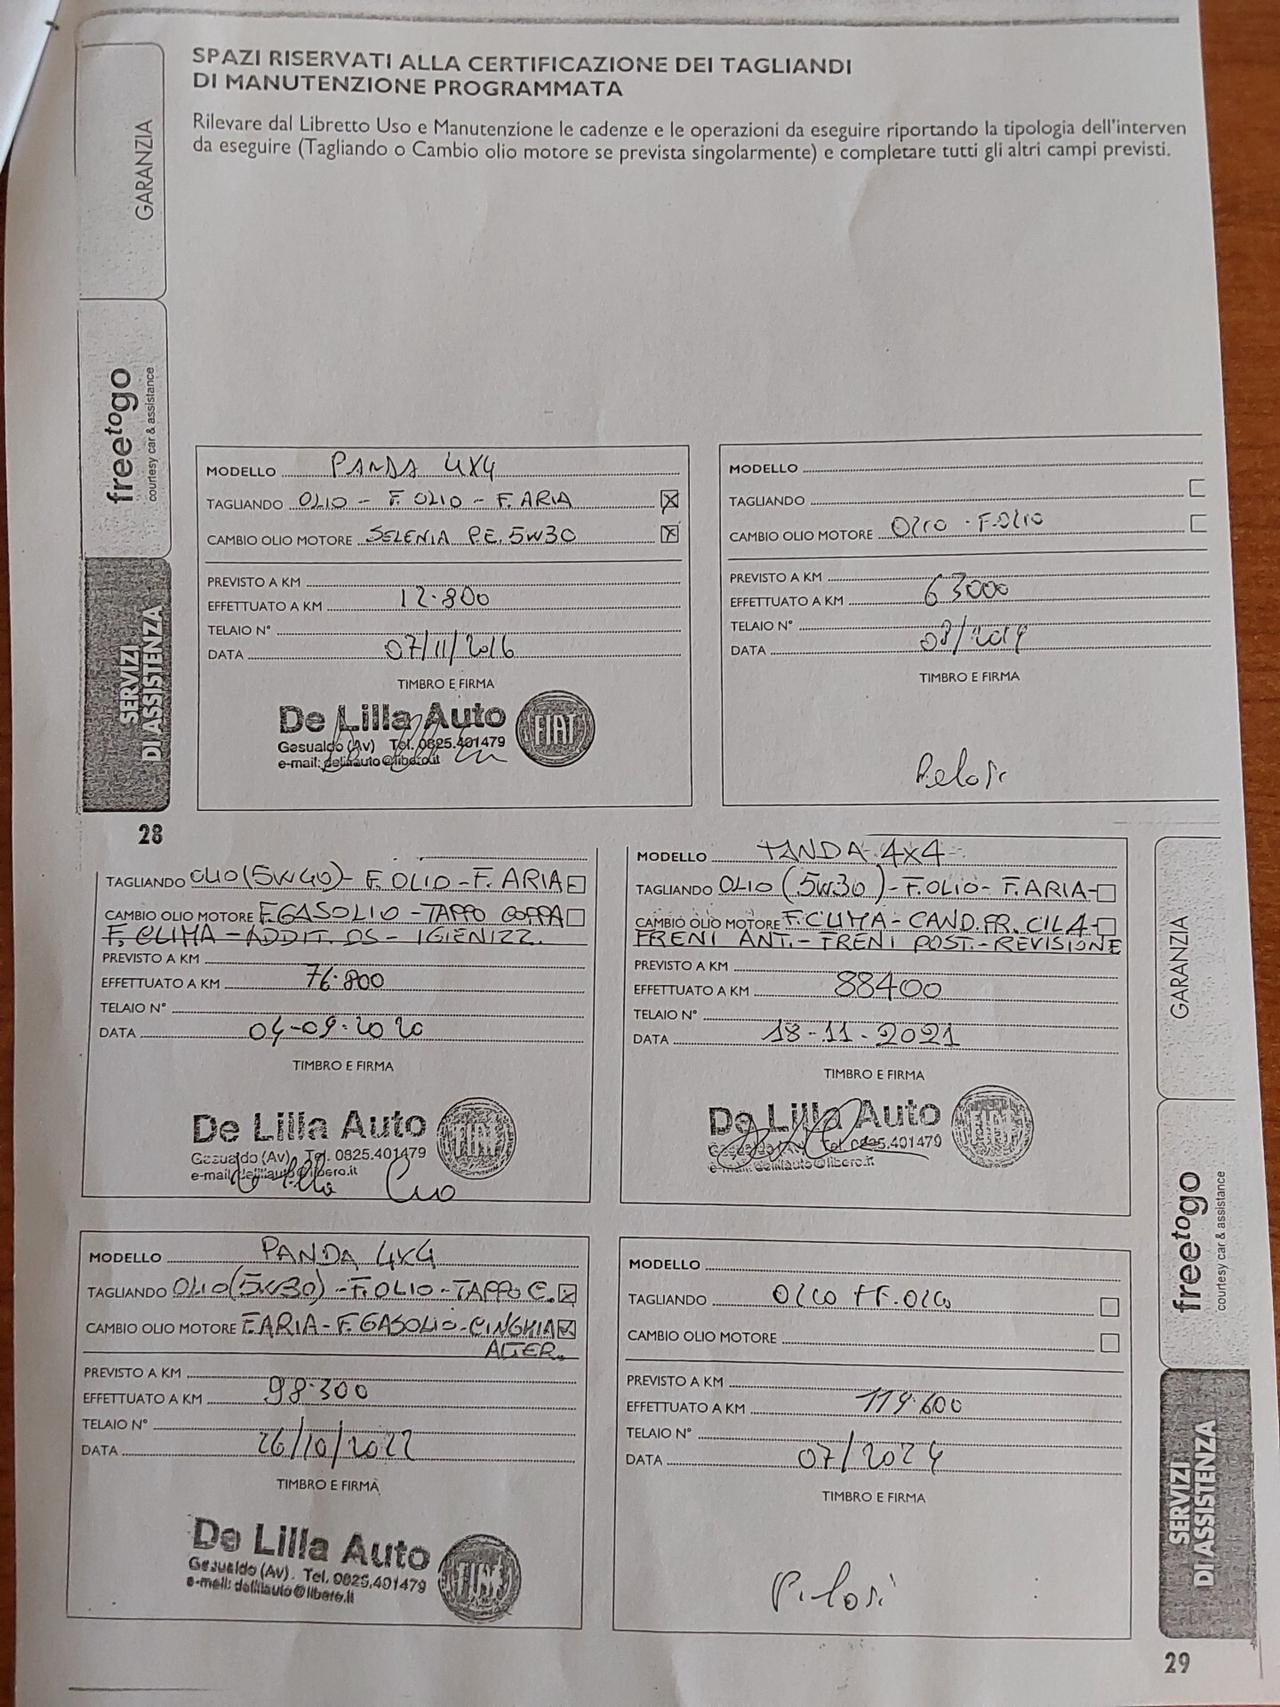 SPAZI RISERVATI ALLA CERTIFICAZIONE DEI TAGLIANDI
DI MANUTENZIONE PROGRAMMATA
Rilevare dal Libretto Uso e Manutenzione le cadenze e le operazioni da eseguire riportando la tipologia dell'interven
da eseguire (Tagliando o Cambio olio motore se prevista singolarmente) e completare tutti gli altri campi previsti.
GARANZIA
freetogo
courtesy car & assistance
SERVIZI
DI ASSISTENZA
28
MODELLO PANDA 4X4
TAGLIANDO OLIO - F. OLIO - F. ARIA
CAMBIO OLIO MOTORE SELENIA P.E. 5W30
PREVISTO A KM
EFFETTUATO A KM 12.800
TELAIO N°
DATA 07/11/2016
TIMBRO E FIRMA
De Lilla Auto
Gesualdo (Av) Tel. 0825.401479
e-mail: delillauto@libero.it
FIAT
MODELLO
TAGLIANDO
CAMBIO OLIO MOTORE OLIO - F. OLIO
PREVISTO A KM
EFFETTUATO A KM 63000
TELAIO N°
DATA 08/2019
TIMBRO E FIRMA
Pelosi
TAGLIANDO OLIO (5W40) - F. OLIO - F. ARIA
CAMBIO OLIO MOTORE F. GASOLIO - TAPPO COPPA
F. CLIMA - ADDIT. DS - IGIENIZZ.
PREVISTO A KM
EFFETTUATO A KM 76.800
TELAIO N°
DATA 04-09-2020
TIMBRO E FIRMA
De Lilla Auto
Gesualdo (Av) Tel. 0825.401479
e-mail: delillauto@libero.it
FIAT
MODELLO PANDA 4x4
TAGLIANDO OLIO (5W30) - F. OLIO - F. ARIA -
CAMBIO OLIO MOTORE F. CLIMA - CAND. PR. CILA -
FRENI ANT. - FRENI POST. - REVISIONE
PREVISTO A KM
EFFETTUATO A KM 88400
TELAIO N°
DATA 18-11-2021
TIMBRO E FIRMA
De Lilla Auto
Gesualdo (Av) Tel. 0825.401479
e-mail: delillauto@libero.it
FIAT
MODELLO PANDA 4X4
TAGLIANDO OLIO (5W30) - F. OLIO - TAPPO C.
CAMBIO OLIO MOTORE F. ARIA - F. GASOLIO - CINGHIA
ALTER.
PREVISTO A KM
EFFETTUATO A KM 98.300
TELAIO N°
DATA 26/10/2022
TIMBRO E FIRMA
De Lilla Auto
Gesualdo (Av). Tel. 0825.401479
e-mail: delillauto@libero.it
FIAT
MODELLO
TAGLIANDO OLIO + F. OLIO
CAMBIO OLIO MOTORE
PREVISTO A KM
EFFETTUATO A KM 119.600
TELAIO N°
DATA 07/2024
TIMBRO E FIRMA
Pelosi
GARANZIA
freetogo
courtesy car & assistance
SERVIZI
DI ASSISTENZA
29